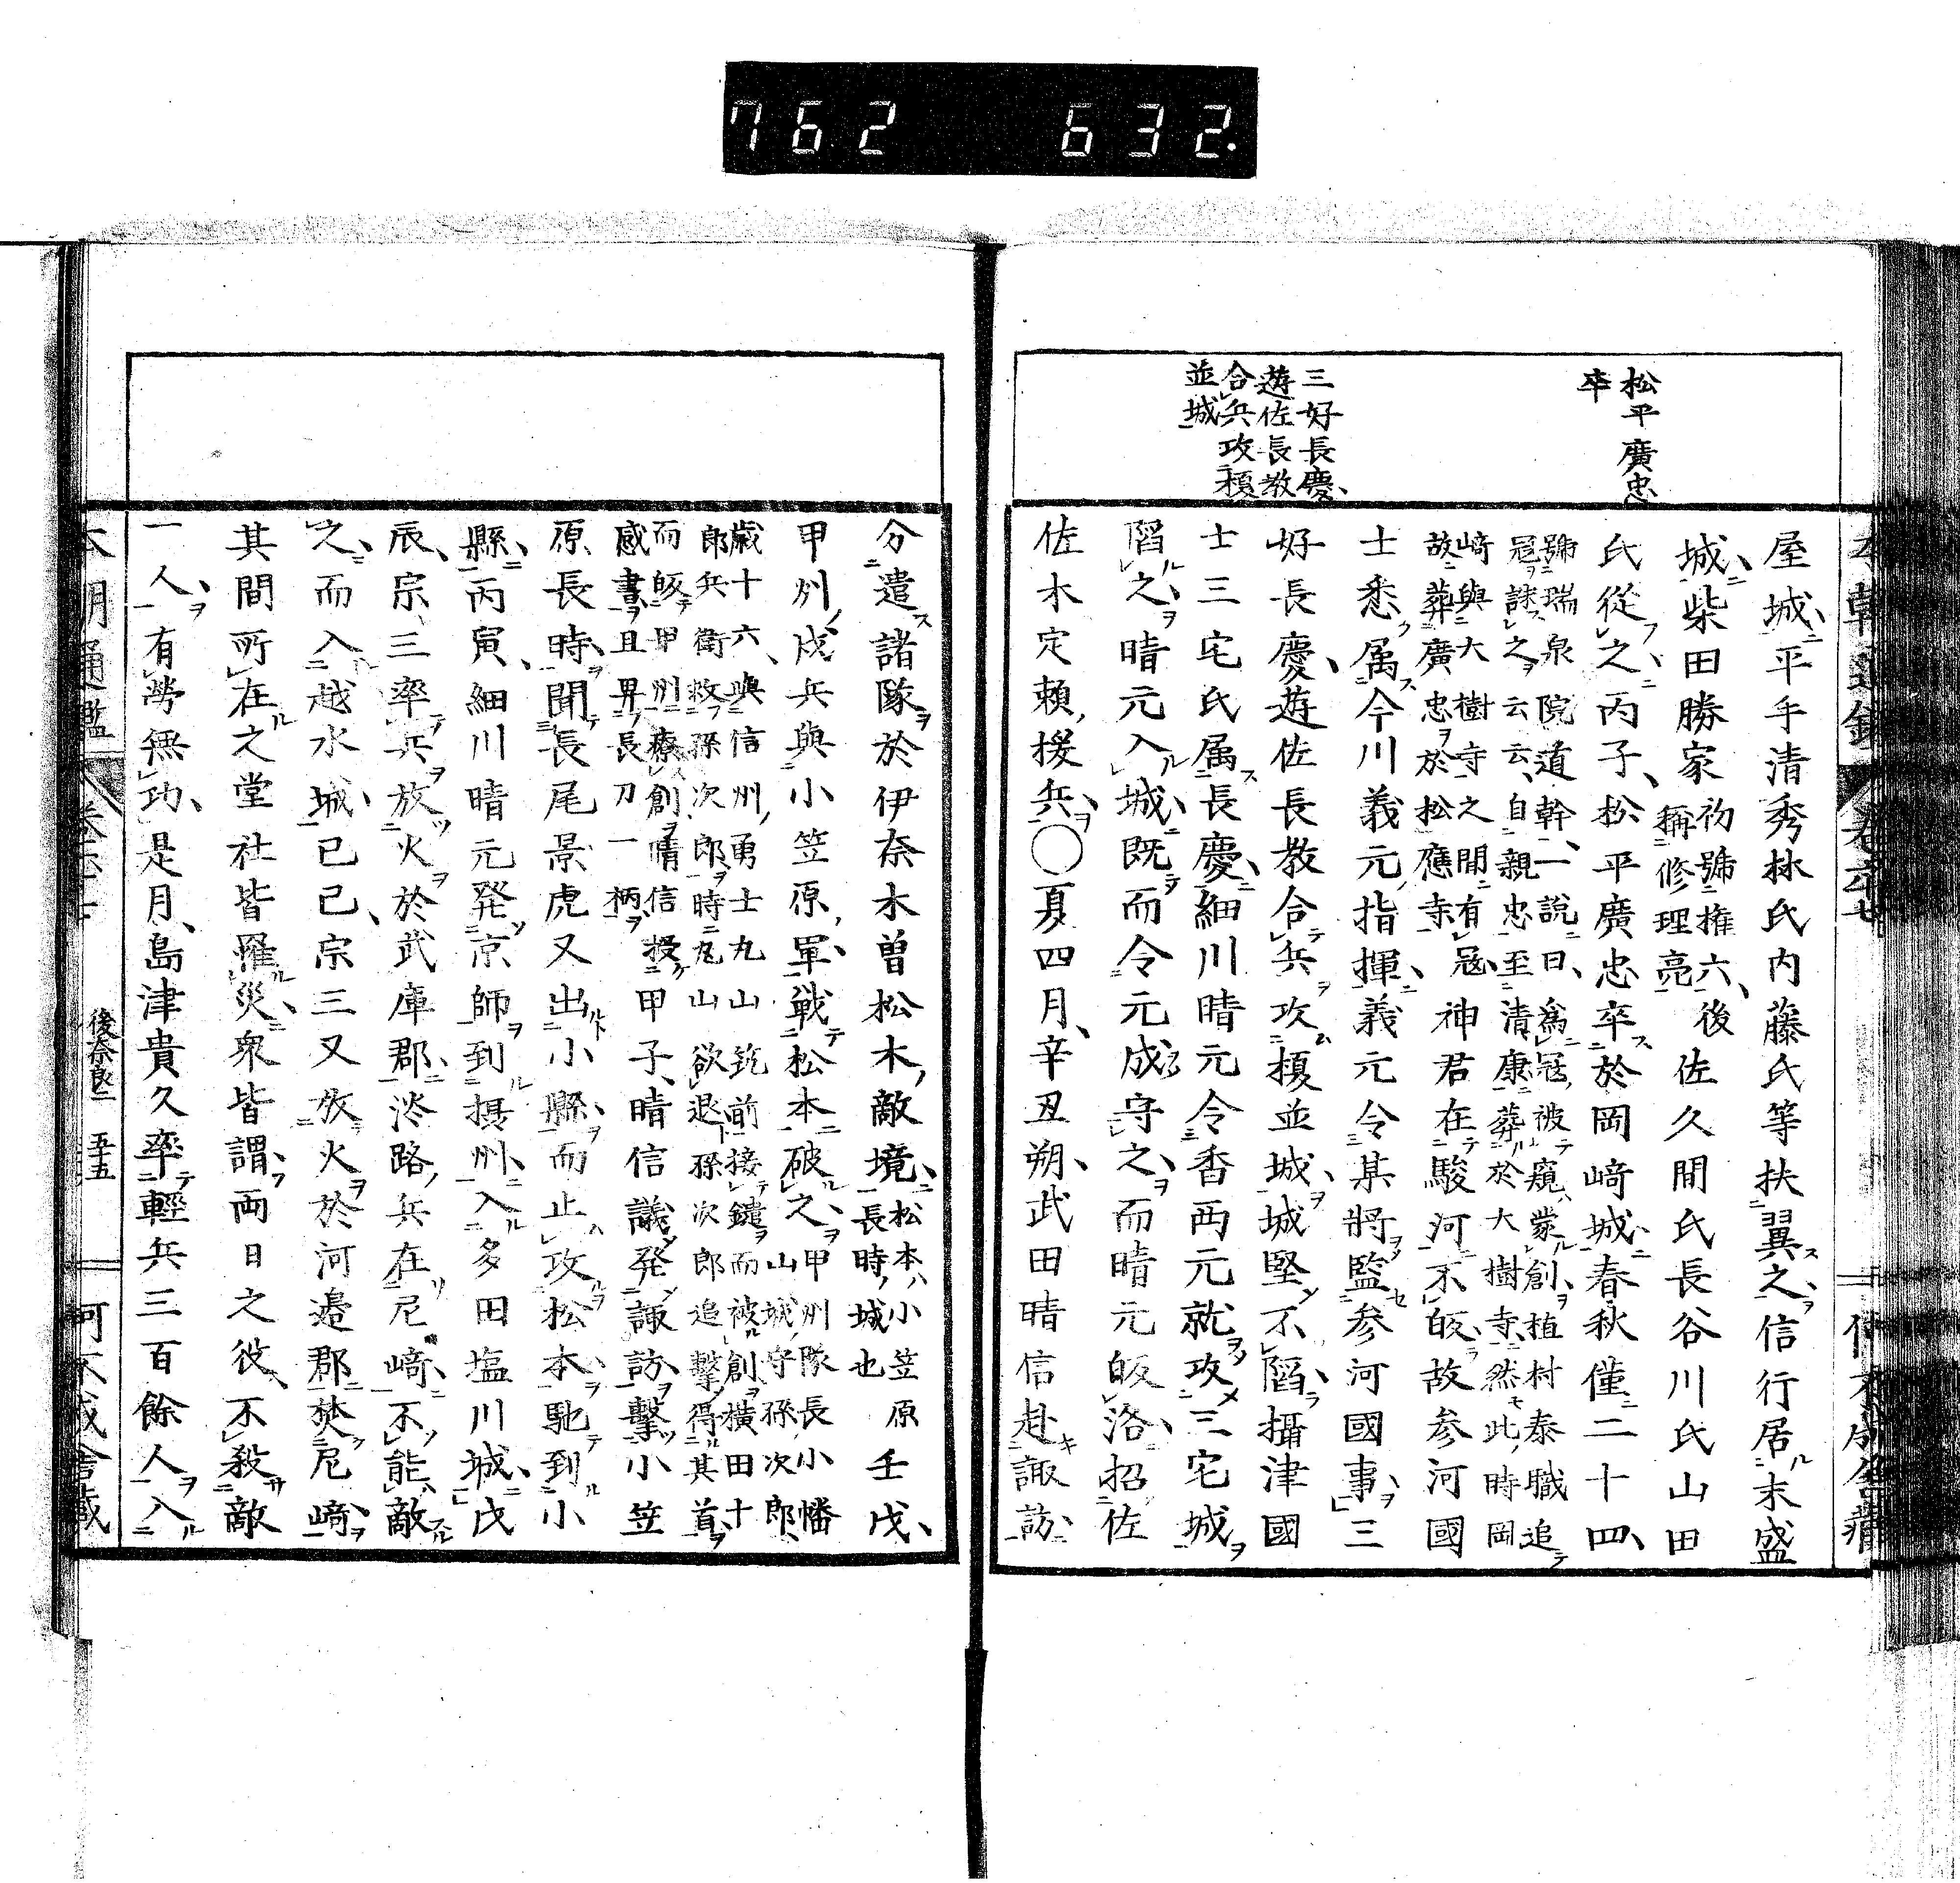 762 632.
松平廣忠
卒
三好長慶
遊佐長教
合兵攻榎
並城
屋城平手清秀林氏内藤氏等扶翼之信行居末盛
城柴田勝家初號権六後稱修理亮佐久間氏長谷川氏山田
氏從之丙子松平廣忠卒於岡﨑城春秋僅二十四
號瑞泉院道幹一說曰爲冦被窺蒙創植村泰職追
冦誅之云云自親忠至清康葬於大樹寺然此時岡
﨑與大樹寺之間有冦
故葬廣忠於松應寺
神君在駿河不皈故参河國
士悉属今川義元指揮義元令其將監参河國事三
好長慶遊佐長教合兵攻榎並城城堅不陷攝津國
士三宅氏属長慶細川晴元令香西元就攻三宅城
陷之晴元入城既而令元成守之而晴元皈洛招佐
佐木定頼援兵○夏四月辛丑朔武田晴信赴諏訪
分遣諸隊於伊奈木曽松木敵境松本小笠原長時城也壬戌
甲州戍兵與小笠原軍戰松本破之甲州隊長小幡山城守孫次郎
歲十六與信州勇士丸山筑前接鑓而被創横田十
郎兵衛救孫次郎時丸山欲退孫次郎追擊得其首
而皈甲州療創晴信授
感書且畀長刀一柄
甲子晴信議発諏訪擊小笠
原長時聞長尾景虎又出小縣而止攻松本馳到小
縣丙寅細川晴元発京師到摂州入多田塩川城戊
辰宗三率兵放火於武庫郡淡路兵在尼﨑不能敵
之而入越水城已已宗三又放火於河邉郡焚尼﨑
其間所在之堂社皆羅災衆皆謂両日之役不殺敵
一人有勞無功是月島津貴久率輕兵三百餘人入
本朝通鑑
後奈良二 五十五